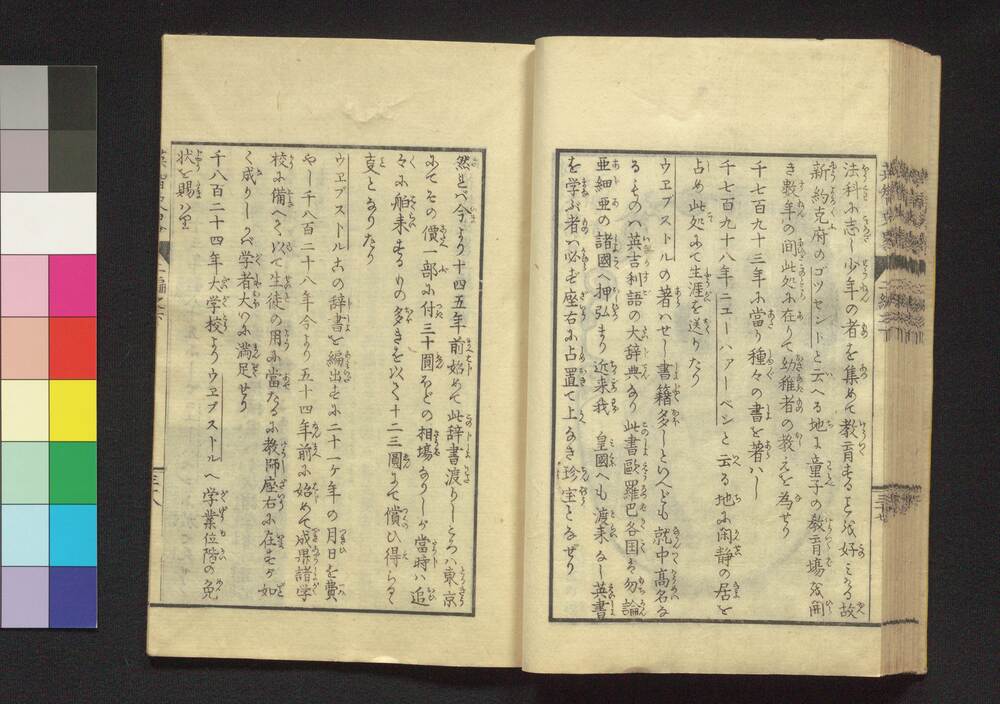 法科に志し少年の者を集めて教育する事を好みける故
新約克府のゴツセンドと云へる地に童子の教育場を開
き数年の間此処に在りて幼稚者の教えを為せり
千七百九十三年に當り種々の書を著ハし
千七百九十八年ニユーハァーベンと云る地に閑静の居を
占め此処にて生涯を送りたり
ウヱブストルの著ハせし書籍多しといへども就中高名な
るものハ英吉利語の大辞典なり此書歐羅巴各国ハ勿論
亜細亜の諸國へ押弘まり近来我　皇國へも渡来なし英書
を学ぶ者ハ必ず座右に占置て上なき珍宝となせり
然れど今より十四五年前始めて此辞書渡りしころハ東京
にてその價一部に付三十圓ほどの相場なりしが當時ハ追
々に舶来するもの多きを以て十二三圓にて償ひ得らるゝ
夏となりたり
ウヱブストル右の辞書を編出すに二十一ケ年の月日を費
やし千八百二十八年今より五十四年前に始めて成県諸学
校に備へて以て生徒の用に當たるに教師座右に在すが如
く成りしかバ学者大いに満足せり
千八百二十四年大学校よりウヱブストルへ学業位階の免
状を賜ハり
三十七
三十八